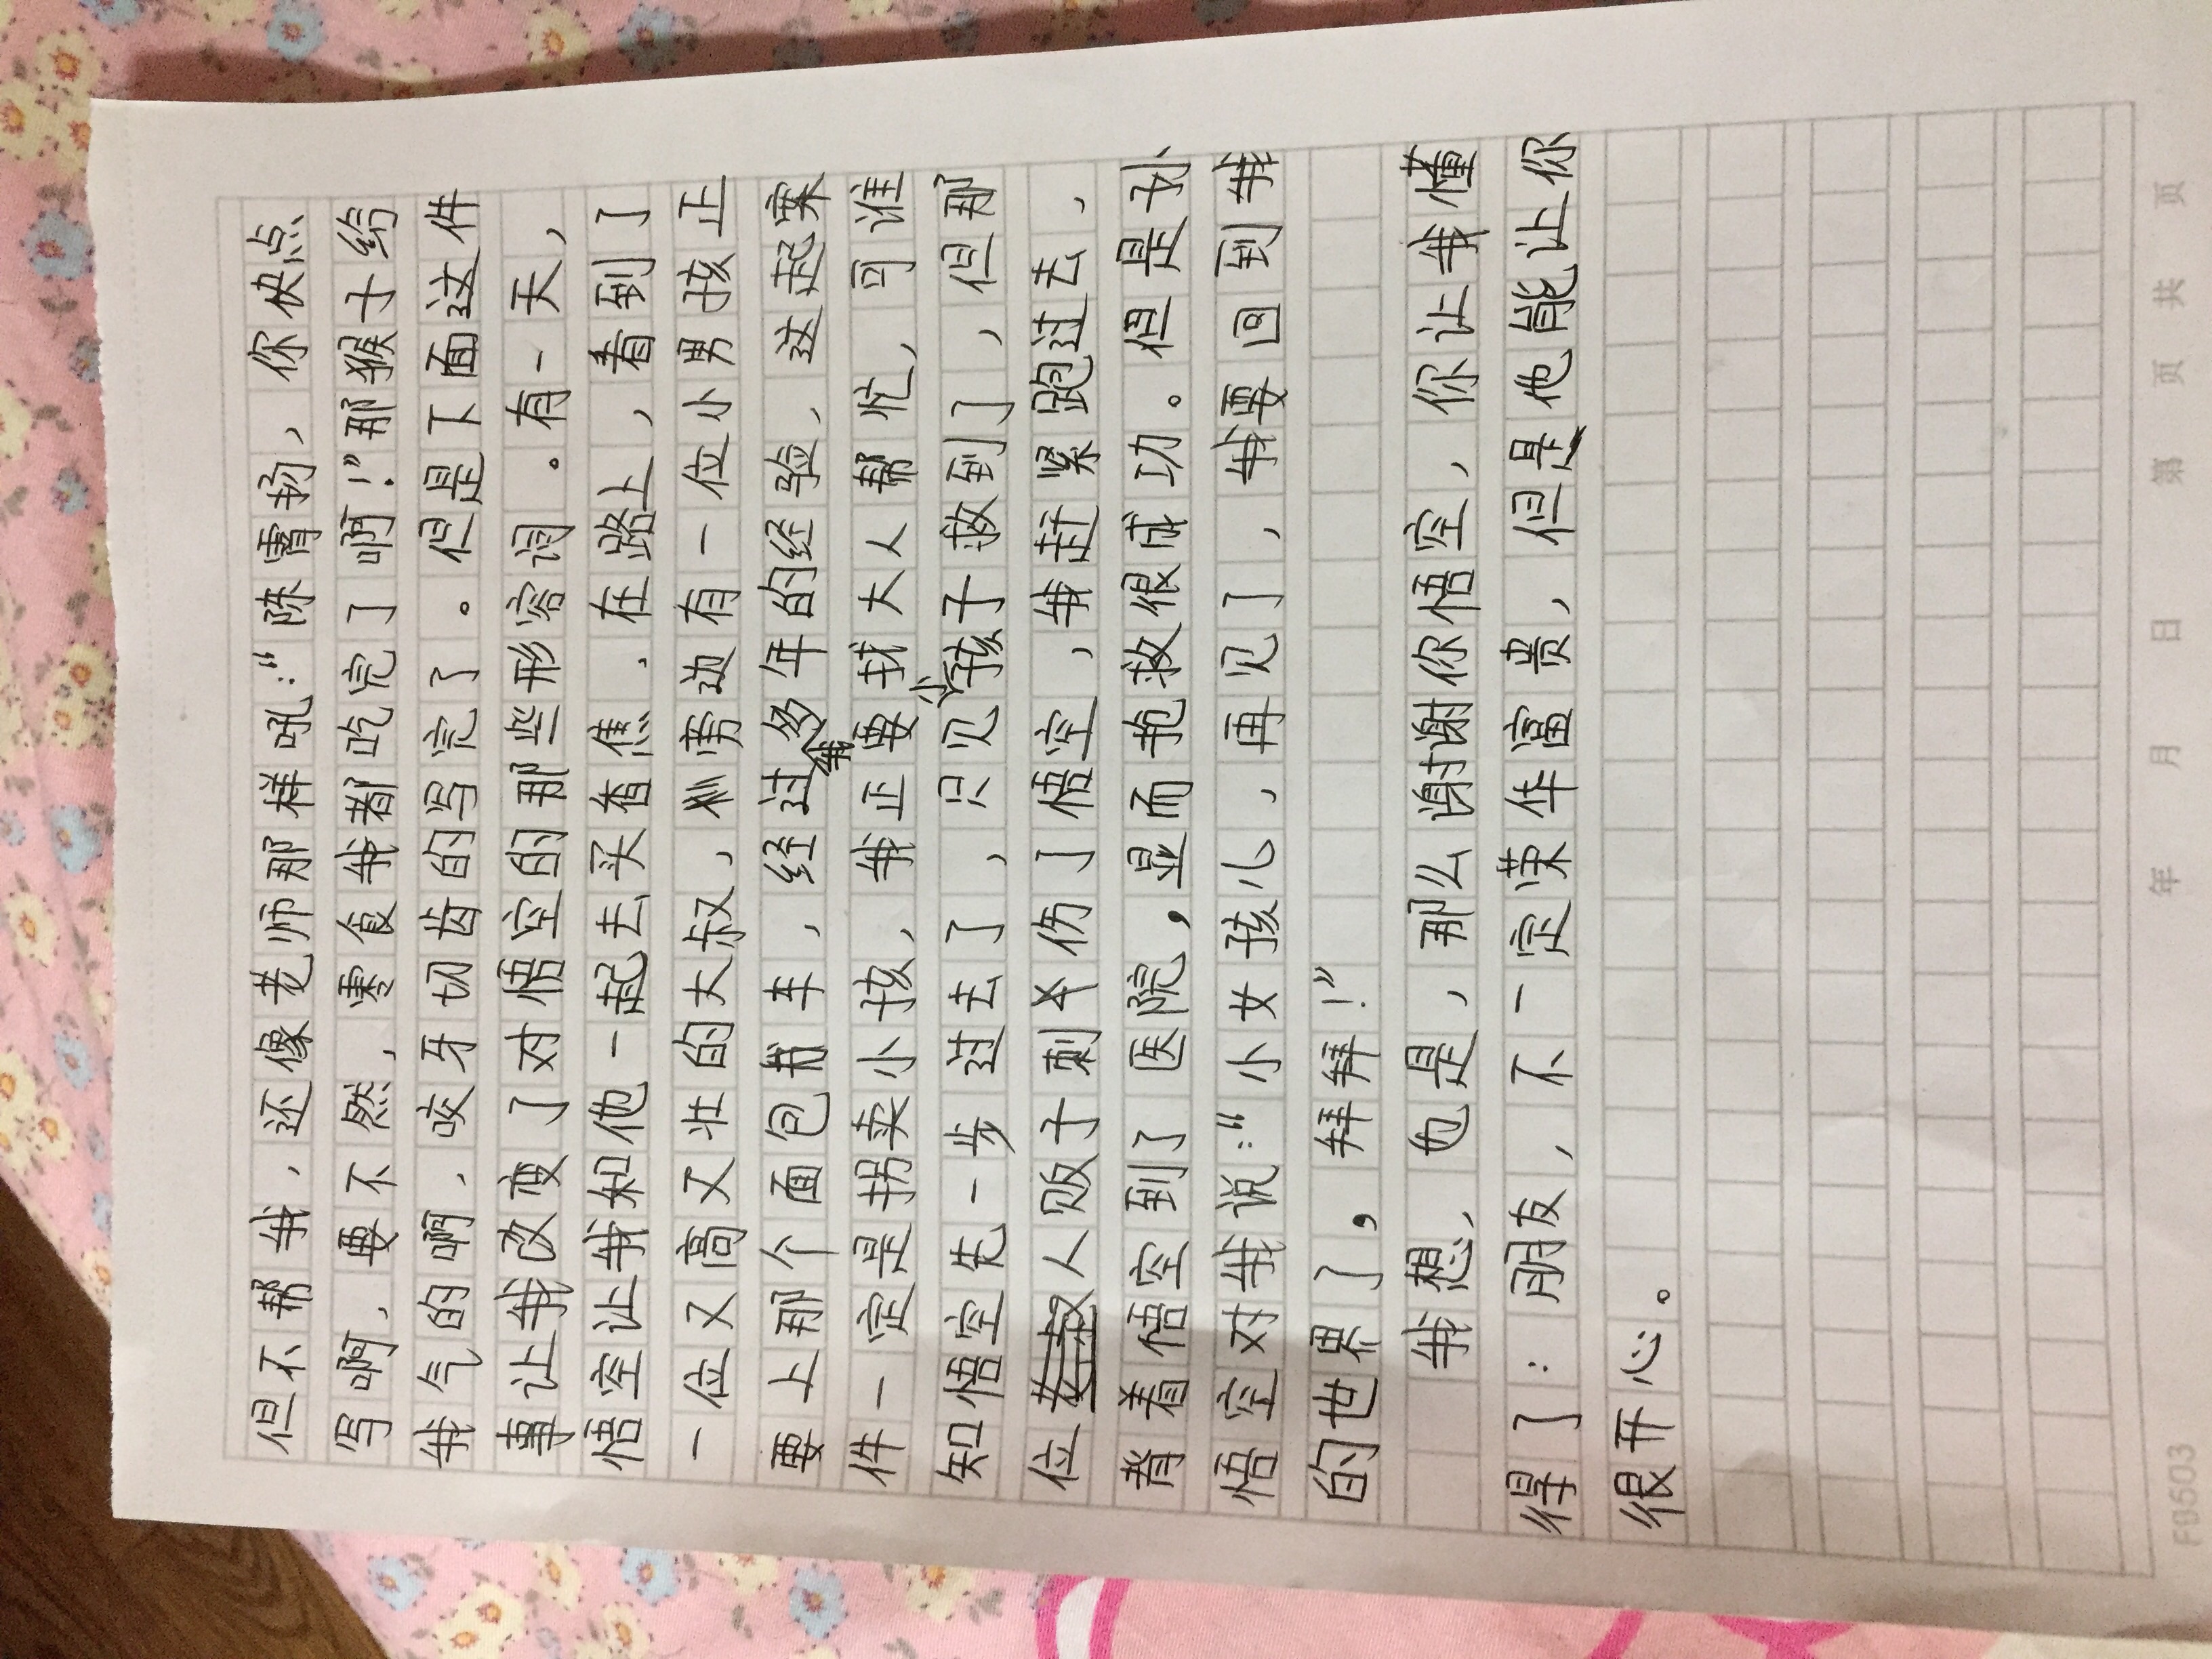 但不帮我，还像老师那样吼：“陈霄扬，你快点
写啊，要不然，零食我都吃完了啊！”那猴子给
我气的啊，咬牙切齿的写完了。但是下面这件
事让我改变了对悟空的那些形容词。有一天，
悟空让我和他一起去买香焦．在路上，看到了
一位又高又壮的大叔，旁边有一位小男孩正
要上那个面包车，经过多年的经验，这起案
件一定是拐卖小孩，我正要找大人帮忙，可谁
知悟空先一步过去了，只见小孩子救到了，但那
位人贩子刺伤了悟空，我赶紧跑过去，
背着悟空到了医院，显而抢救很成功。但是孙
悟空对我说：“小女孩儿，再见了，我要回到我
的世界了，拜拜！”
我想，也是，那么谢谢你悟空，你让我懂
得了：朋友，不一定荣华富贵，但是他能让你
很开心。
年 月 日 第 页 共 页
FB503